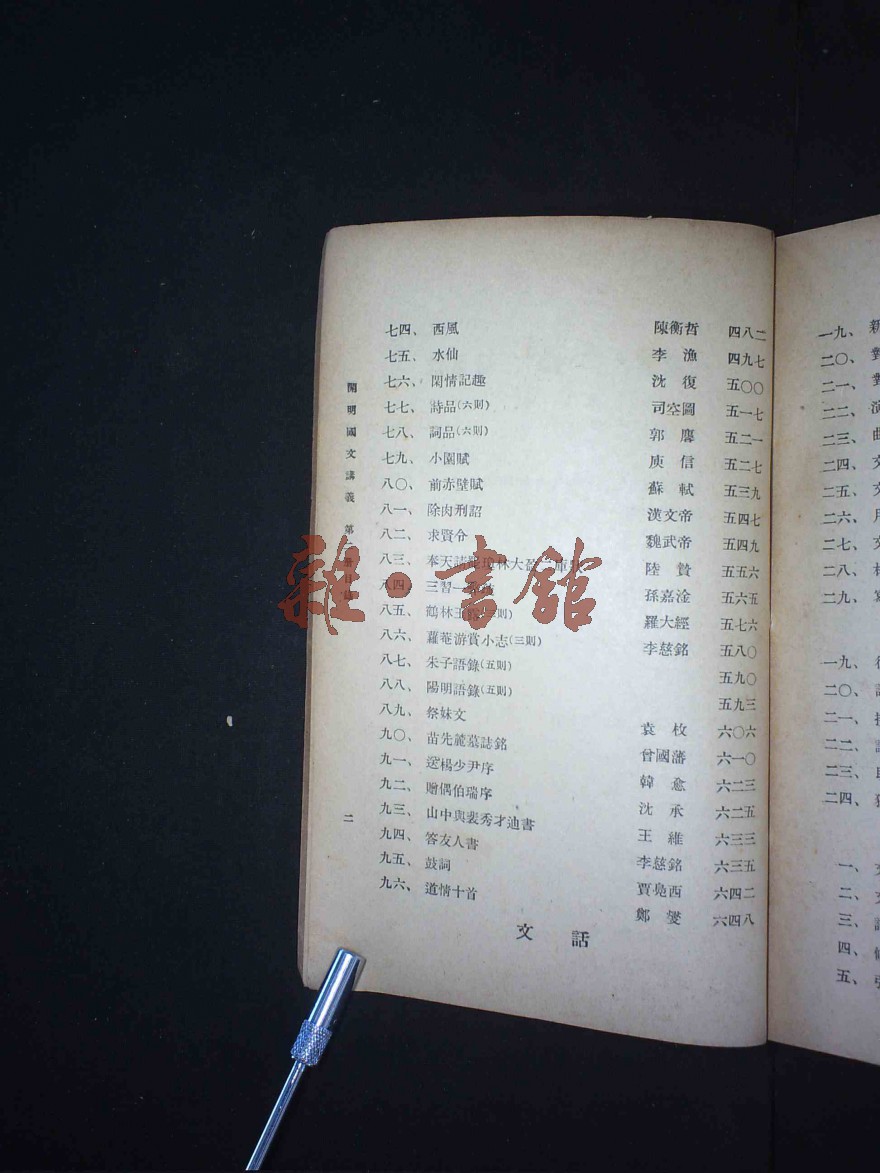 七四、 西風 陳衡哲 四八二
七五、 水仙 李漁 四九七
七六、 閑情記趣 沈復 五〇〇
七七、 詩品(六則) 司空圖 五一七
七八、 詞品(六則) 郭麐 五二一
七九、 小園賦 庾信 五二七
八〇、 前赤壁賦 蘇軾 五三九
八一、 除肉刑詔 漢文帝 五四七
八二、 求賢令 魏武帝 五四九
八三、 奉天請罷瓊林大盈二庫狀 陸贄 五五六
八四、 三習一弊疏 孫嘉淦 五六五
八五、 鶴林玉露(三則) 羅大經 五七六
八六、 蘿菴游賞小志(三則) 李慈銘 五八〇
八七、 朱子語錄(五則) 五九〇
八八、 陽明語錄(五則) 五九三
八九、 祭妹文 袁枚 六〇六
九〇、 苗先麓墓誌銘 曾國藩 六一〇
九一、 送楊少尹序 韓愈 六二三
九二、 贈偶伯瑞序 沈承 六二五
九三、 山中與裴秀才迪書 王維 六三三
九四、 答友人書 李慈銘 六三五
九五、 鼓詞 賈鳧西 六四二
九六、 道情十首 鄭燮 六四八
文話
開明國文講義 第 册目
二
雜·書館
一九、
二〇、
二一、
二二、
二三、
二四、
二五、
二六、
二七、
二八、
二九、
一九、
二〇、
二一、
二二、
二三、
二四、
一、
二、
三、
四、
五、